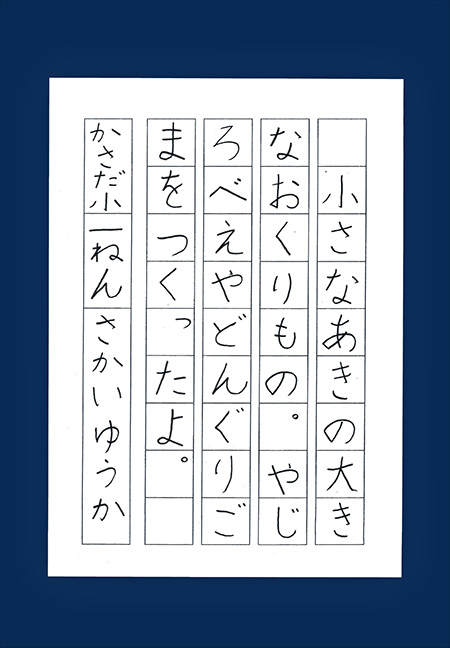 小さなあきの大き
なおくりもの。やじ
ろべえやどんぐりご
まをつくったよ。
かさだ小一ねんさかいゆうか